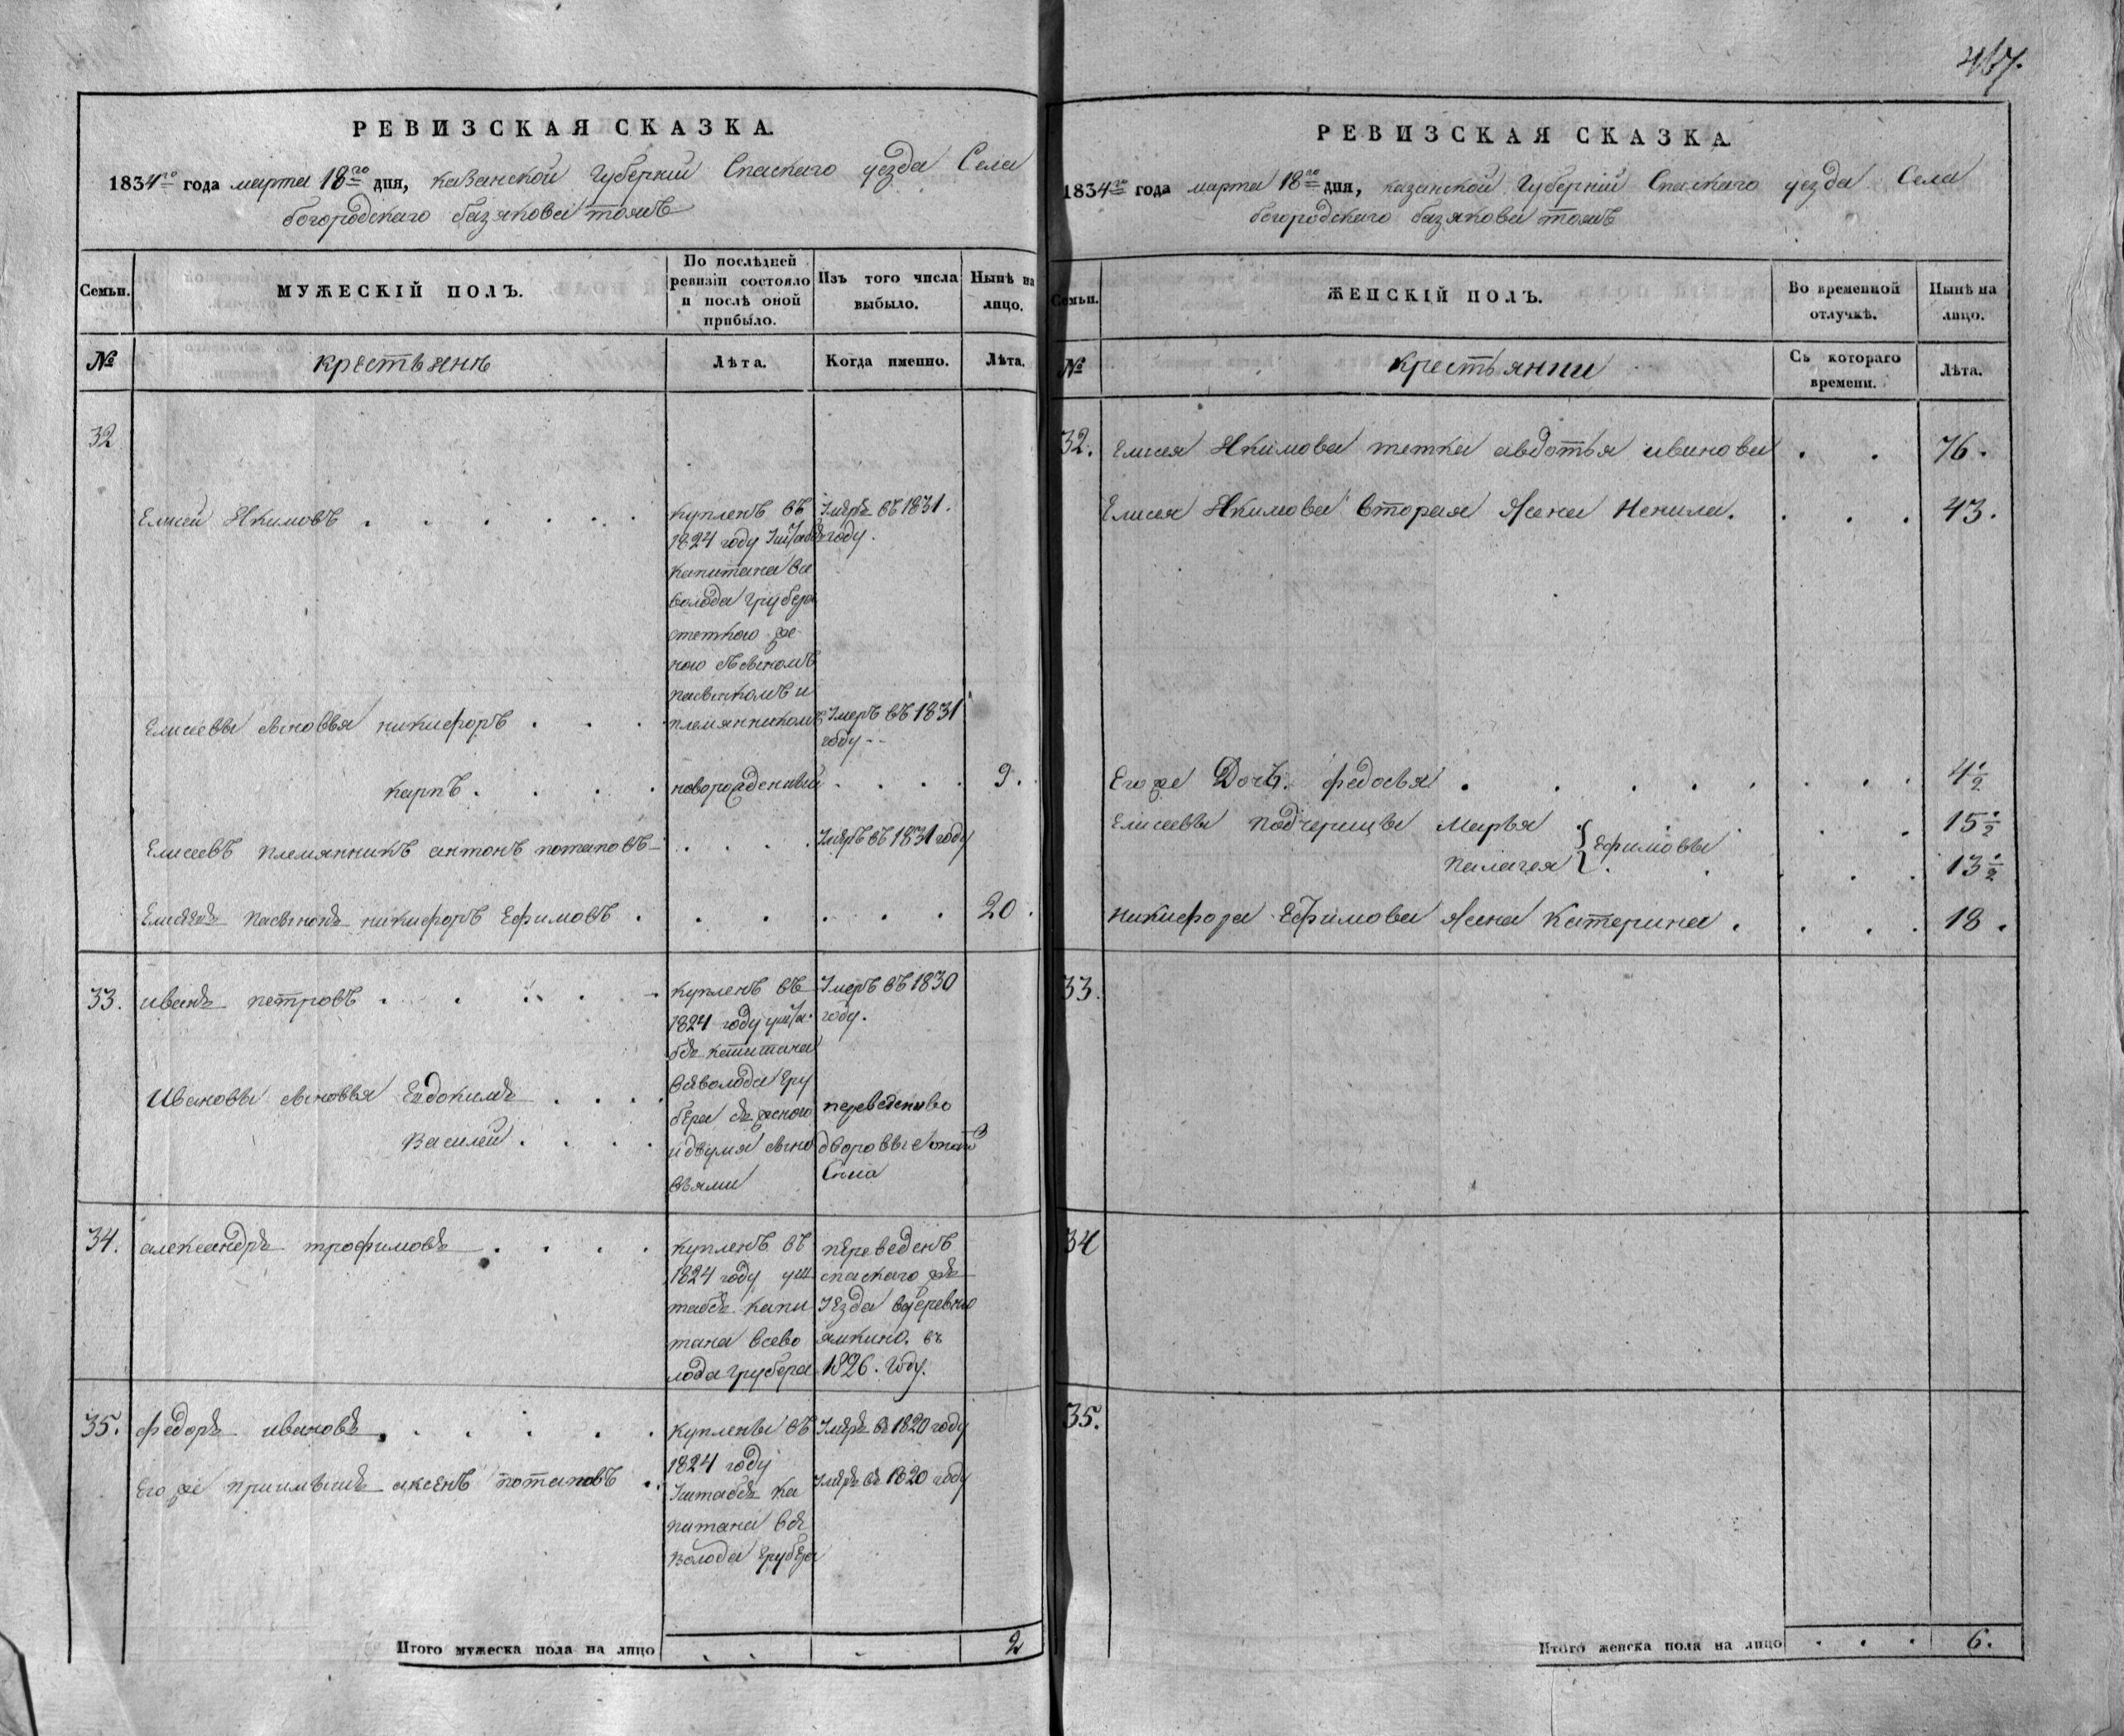 РЕВИЗСКАЯ СКАЗКА.
1834го года марта 18го дня, казанской Губерніи Спаскаго уезда Села
богородскаго базякова тожъ
Семьи.
МУЖЕСКІЙ ПОЛЪ.
По послѣдней
ревизіи состояло
и послѣ оной
прибыло.
Изъ того числа
выбыло.
Нынѣ на
лицо.
№
крестьянъ
Лѣта.
Когда именно.
Лѣта.
32
Елисей Якимовъ
купленъ въ
1824 году
капитана
волода грубера
племянникомъ
Умеръ въ 1831.
году.
Елисеевы сыновья никифоръ
Умеръ въ 1831
году
карпъ
новорожденный
9.
Елисеевъ племянникъ антонъ потаповъ
Умеръ въ 1831 году
Елисеевъ пасынокъ никифоръ Ефимовъ
20.
33.
иванъ петровъ
купленъ въ
1824 году у шта
бсъ капитана
всеволода гру
бера съ женою
и двумя сыно
вьями
Умеръ въ 1830
году.
Ивановы сыновья Евдокимъ
Василей
переведены во
дворовые
34.
александръ трофимовъ
купленъ въ
1824 году у ш
табсъ капи
тана всево
лода грубера
переведенъ
спаскаго же
уезда в деревню
ямкино. въ
1826. году.
35.
федоръ ивановъ
купленъ въ
1824 году
Уштабсъ ка
питана все
волода грубера
Умеръ въ 1820 году
Его же приимышъ аксенъ потаповъ
Умеръ въ 1820 году
Итого мужеска пола на лицо
2
РЕВИЗСКАЯ СКАЗКА
1834го года марта 18го дня, казанской Губерніи Спаскаго уезда Села
богородскаго базякова тожъ
Семьи.
ЖЕНСКІЙ ПОЛЪ.
Во временной
отлучкѣ.
Нынѣ на
лицо.
№
крестьянки
Съ котораго
времени.
Лѣта.
32. Елисея Якимова тетка авдотья иванова 76.
Елисея Якимова вторая Жена Ненила. 43.
Его же Дочь федосья 4½
Елисеевы падчерицы Марья 15½
Ефимовы
Палагея 13½
Никифора Ефимова Жена Катерина 18.
33.
34
35.
Итого женска пола на лицо 6.